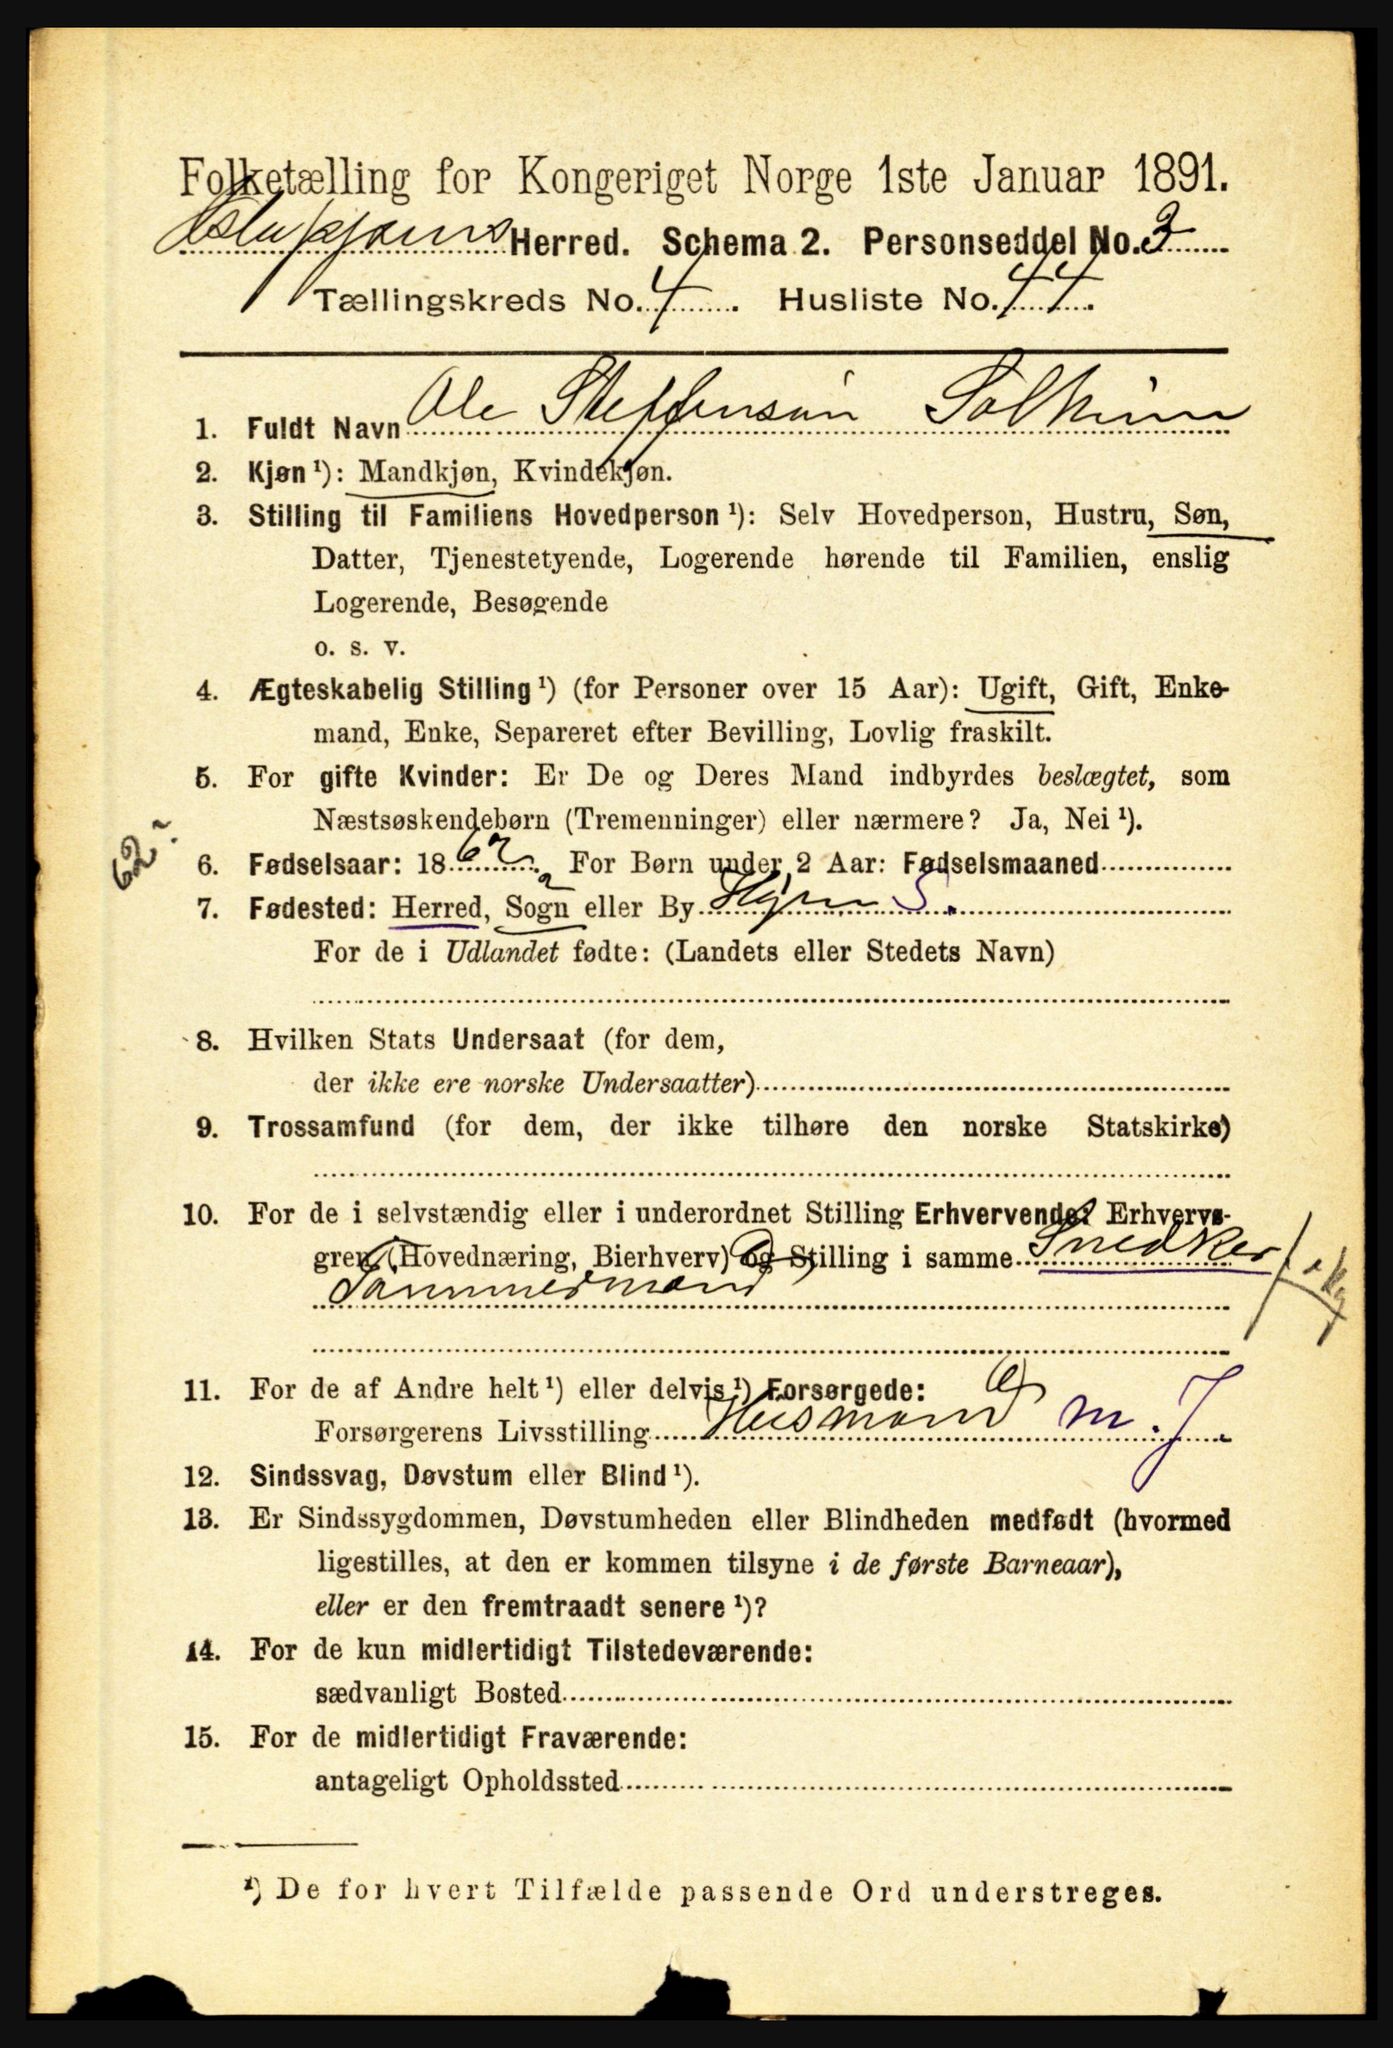 Folketælling for Kongeriget Norge 1ste Januar 1891.
Herred. Schema 2. Personseddel No. 3
Tællingskreds No. 4. Husliste No. 44.
1. Fuldt Navn Ole Steffensøn Solheim
2. Kjøn ¹): Mandkjøn, Kvindekjøn.
3. Stilling til Familiens Hovedperson ¹): Selv Hovedperson, Hustru, Søn,
Datter, Tjenestetyende, Logerende hørende til Familien, enslig
Logerende, Besøgende
o. s. v.
4. Ægteskabelig Stilling ¹) (for Personer over 15 Aar): Ugift, Gift, Enke-
mand, Enke, Separeret efter Bevilling, Lovlig fraskilt.
5. For gifte Kvinder: Er De og Deres Mand indbyrdes beslægtet, som
Næstsøskendebørn (Tremenninger) eller nærmere? Ja, Nei ¹).
62
6. Fødselsaar: 1862. For Børn under 2 Aar: Fødselsmaaned
7. Fødested: Herred, Sogn eller By Hyen S.
For de i Udlandet fødte: (Landets eller Stedets Navn)
8. Hvilken Stats Undersaat (for dem,
der ikke ere norske Undersaatter)
9. Trossamfund (for dem, der ikke tilhøre den norske Statskirke)
10. For de i selvstændig eller i underordnet Stilling Erhvervende: Erhvervs-
gren (Hovednæring, Bierhverv) og Stilling i samme Snedker
Tømmermand
11. For de af Andre helt ¹) eller delvis ¹) Forsørgede:
Forsørgerens Livsstilling Husmand m. J.
12. Sindssvag, Døvstum eller Blind ¹).
13. Er Sindssygdommen, Døvstumheden eller Blindheden medfødt (hvormed
ligestilles, at den er kommen tilsyne i de første Barneaar),
eller er den fremtraadt senere ¹)?
14. For de kun midlertidigt Tilstedeværende:
sædvanligt Bosted
15. For de midlertidigt Fraværende:
antageligt Opholdssted
¹) De for hvert Tilfælde passende Ord understreges.